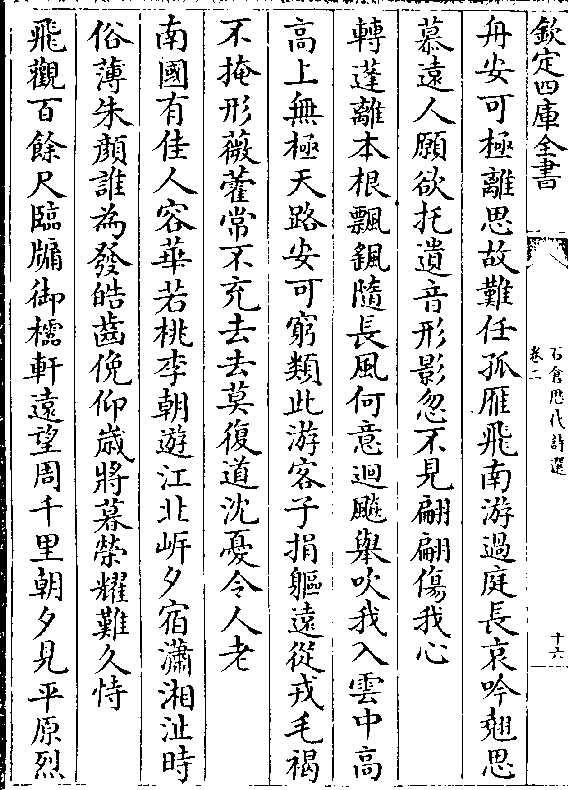 欽定四庫全書
石倉歴代詩選
卷二
十六
舟安可極離思故難任孤雁飛南游過庭長哀吟翹思
慕遠人願欲托遺音形影忽不見翩翩傷我心
轉蓬離本根飄颻隨長風何意迴飈舉吹我入雲中高
高上無極天路安可窮類此游客子捐軀遠從戎毛褐
不掩形薇藿常不充去去莫復道沈憂令人老
南國有佳人容華若桃李朝遊江北岍夕宿瀟湘沚時
俗薄朱顔誰為發皓齒俛仰歲將暮榮耀難久恃
飛觀百餘尺臨牖御櫺軒遠望周千里朝夕見平原烈